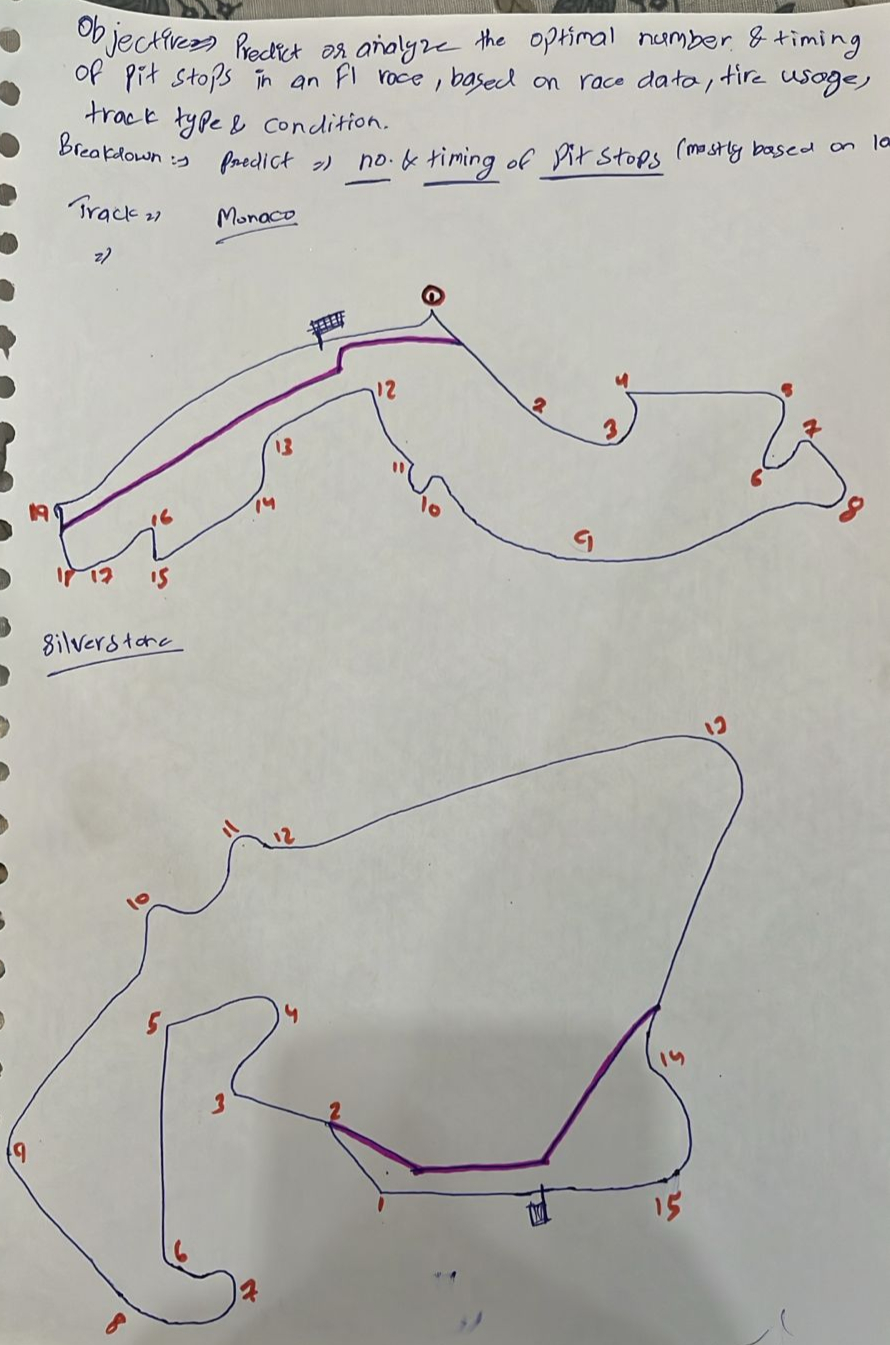 Objective => Predict or analyze the optimal number & timing
of pit stops in an F1 race, based on race data, tire usage,
track type & condition.
Breakdown => Predict => no. & timing of Pit Stops (mostly based on la
Track => Monaco
=>
1
2
3
4
5
6
7
8
9
10
11
12
13
14
15
16
17
18
19
Silverstone
1
2
3
4
5
6
7
8
9
10
11
12
13
14
15